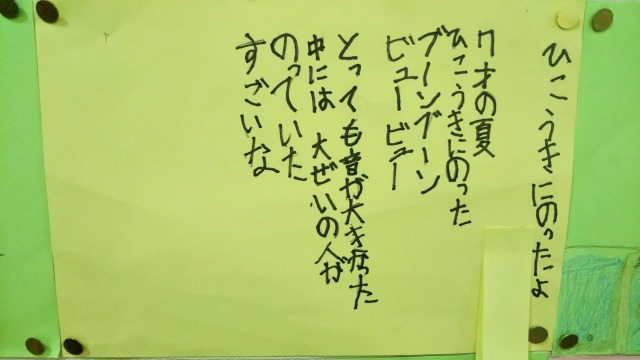 ひこうきにのったよ
7才の夏
ひこうきにのった
ブーンブーン
ビュービュー
とっても音が大きかった
中には大ぜいの人が
のっていた
すごいな